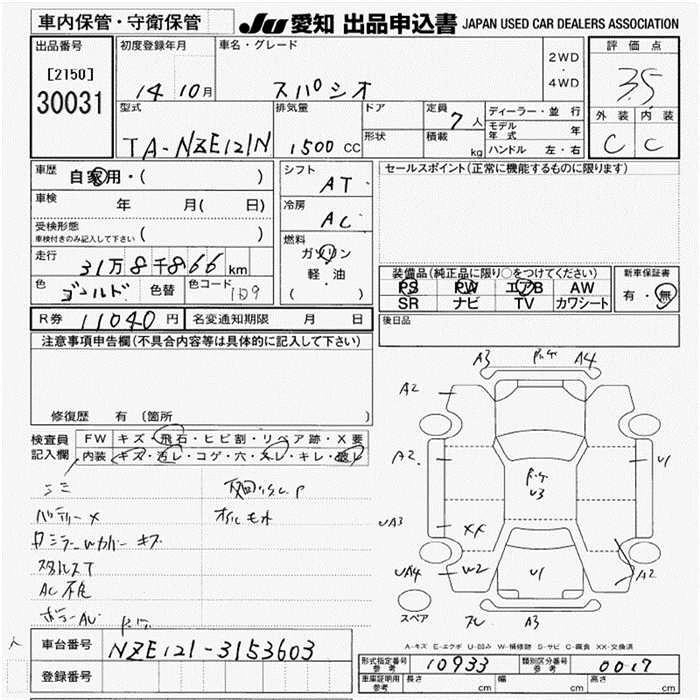 車内保管・守衛保管
JU 愛知 出品申込書 JAPAN USED CAR DEALERS ASSOCIATION
出品番号 初度登録年月 車名・グレード 2WD・4WD 評価点
[2150]
30031 14 10月 スパシオ 3.5
型式 排気量 ドア 定員 7人 ディーラー・並行 外装 内装
形状 積載 kg モデル年式 年
TA-NZE121N 1500 CC ハンドル 左・右 C C
車歴 自家用・( ) シフト AT セールスポイント(正常に機能するものに限ります)
車検 年 月( 日) 冷房 AC
受検形態
車検付きのみ記入して下さい ( )
走行 31万8千866km 燃料 ガソリン 軽油 ( )
装備品(純正品に限り○をつけてください) 新車保証書
PS PW エアB AW 有・無
SR ナビ TV カワシート
色 ゴールド 色替 色コード 1D9
R券 11040円 名変通知期限 月 日 後日品
注意事項申告欄(不具合内容等は具体的に記入して下さい)
修復歴 有(箇所
検査員記入欄 FW キズ・飛石・ヒビ割・リペア跡・X要
内装 キズ・汚レ・コゲ・穴・スレ・キレ・破レ
バッテリーX オイルモレ
AC不良
A3 A4
A2
A2 U1
U3
UA3 XX
UA4 W2 U1 A2
スペア A3
A-キズ E-エクボ U-凹み W-補修跡 S-サビ C-腐食 XX-交換済
車台番号 NZE121-3153603
登録番号
形式指定番号 参考 10933 類別区分番号 参考 0017
車庫証明用 参考 長さ cm 幅 cm 高さ cm